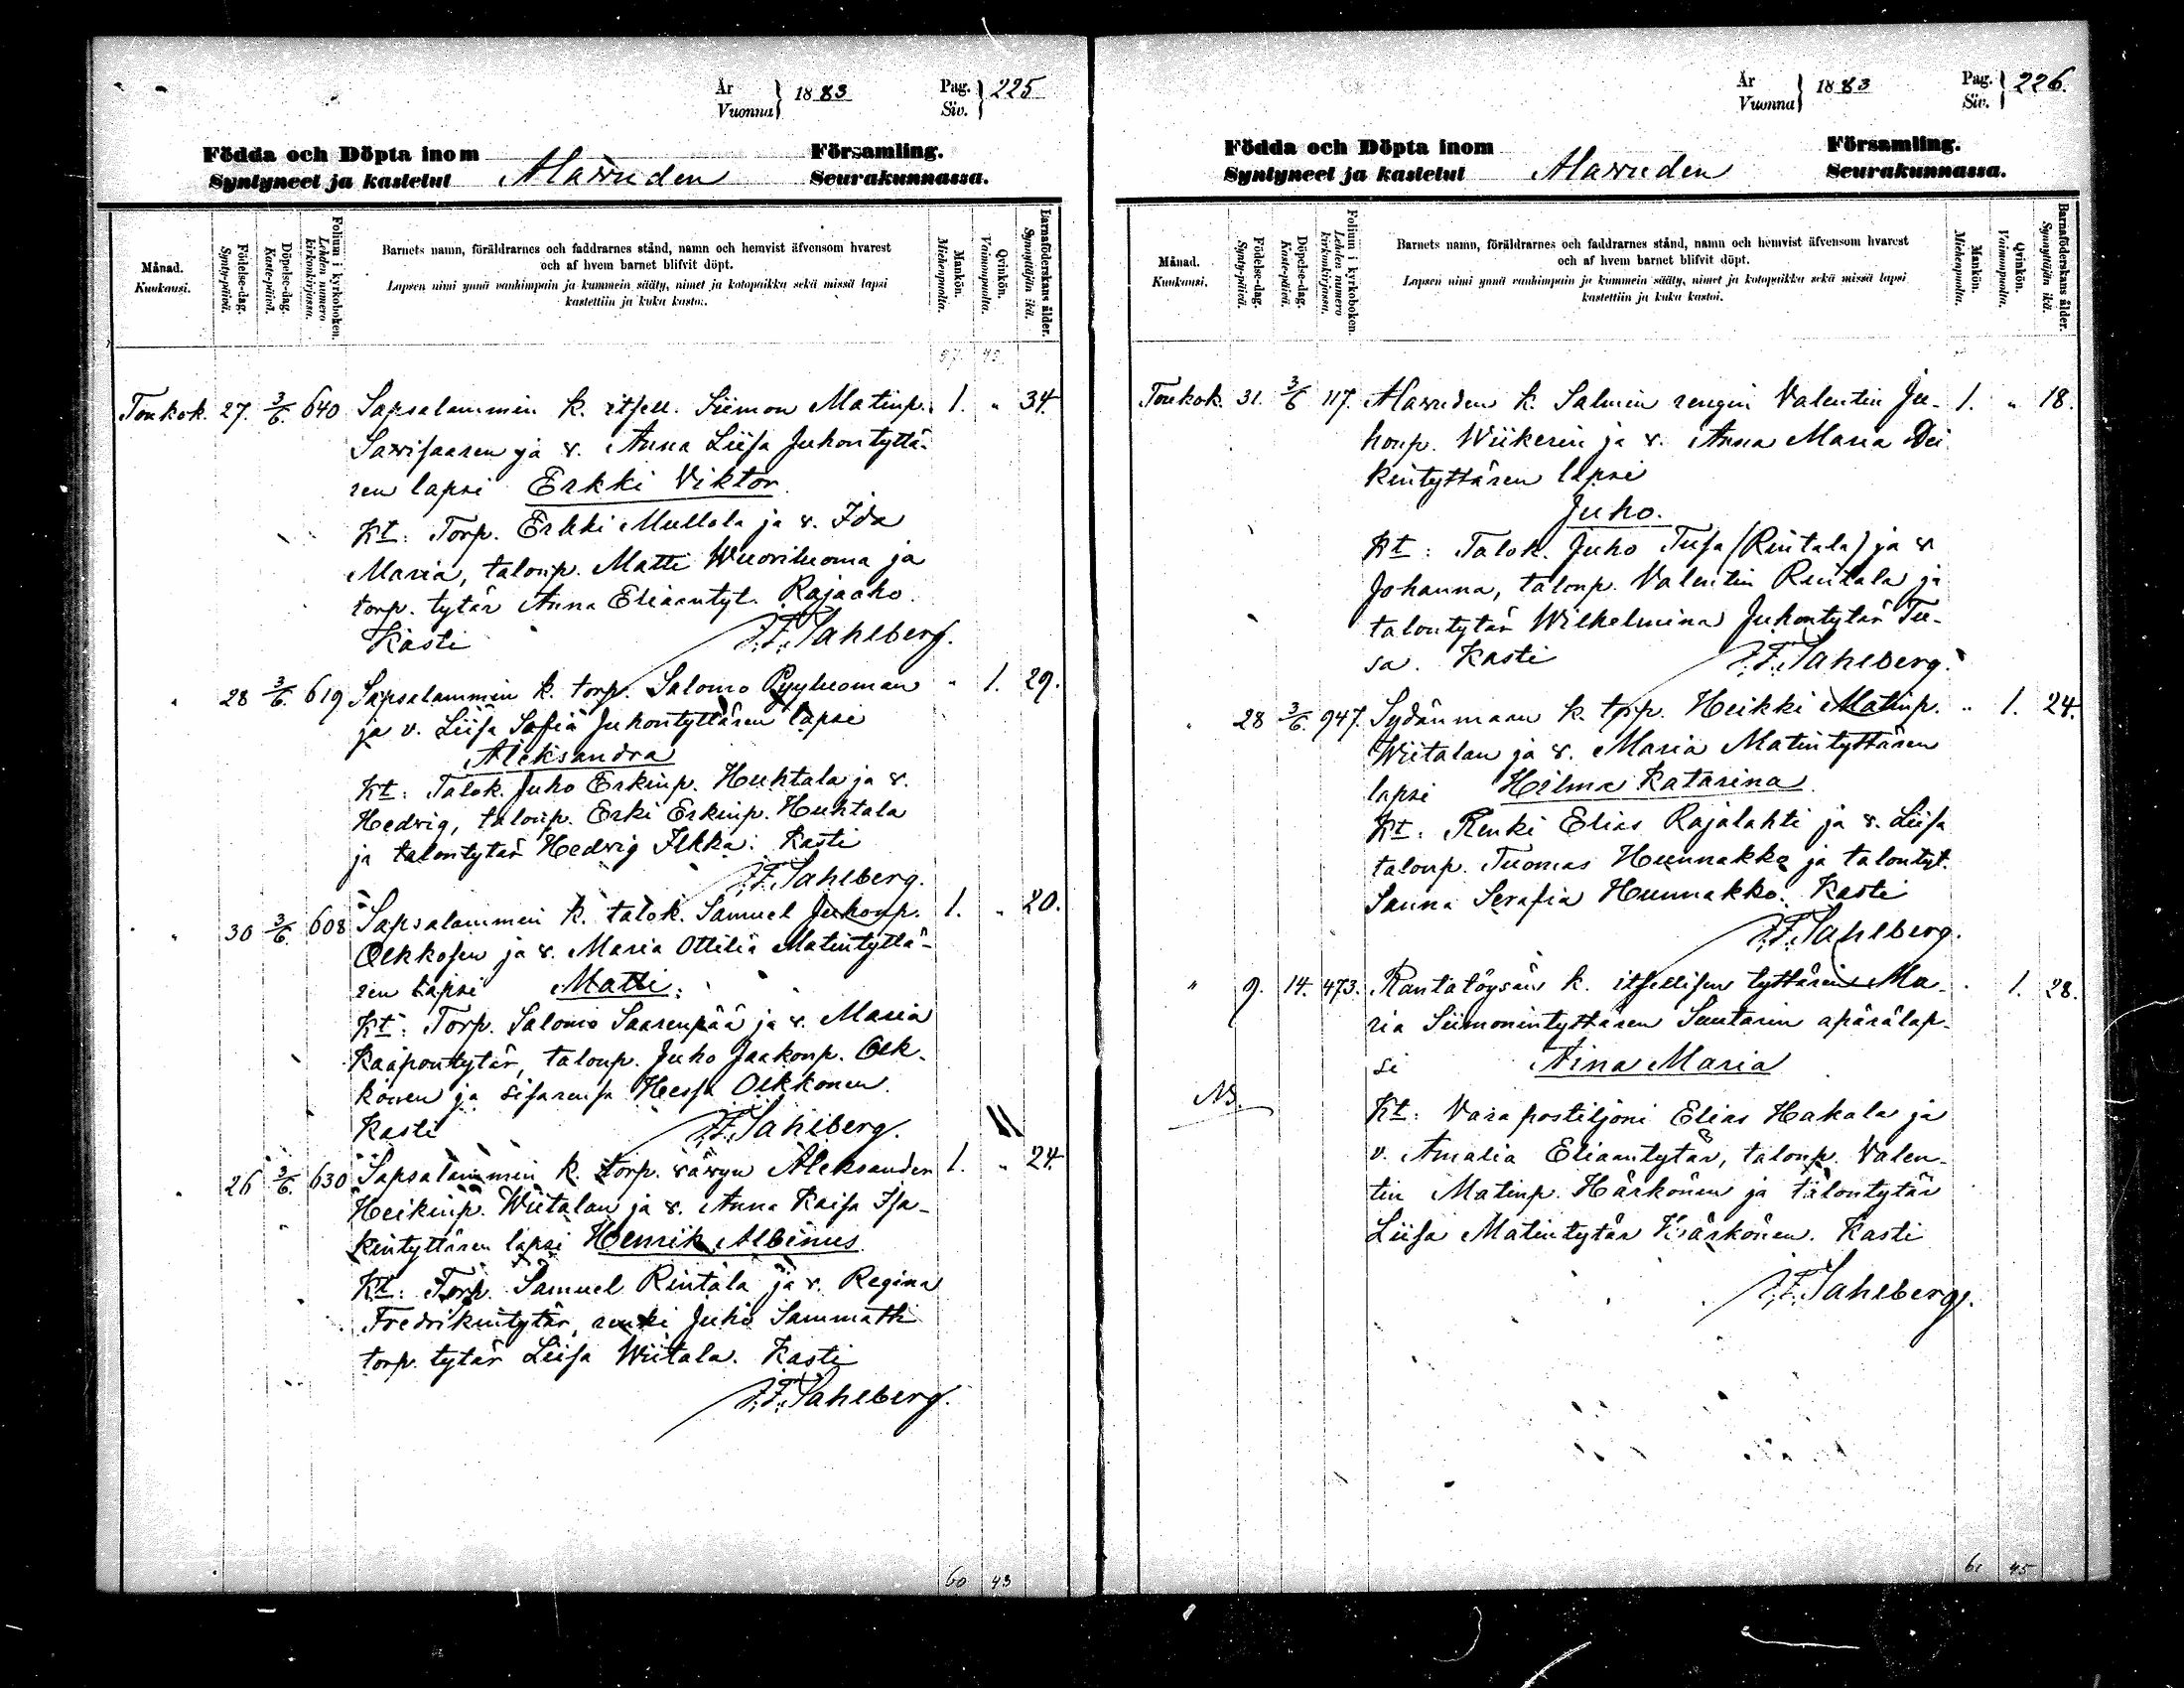 År
Vuonna } 1883 Pag.
Siv. } 225
Födda och Döpta inom Församling.
Syntyneet ja kastetut Alavuden Seurakunnassa.
Månad.
Kuukausi.
Födelse-dag.
Synty-päivä.
Döpelse-dag.
Kaste-päivä.
Folium i kyrkoboken.
Lehden numero kirkonkirjassa.
Barnets namn, föräldrarnes och faddrarnes stånd, namn och hemvist äfvensom hvarest
och af hvem barnet blifvit döpt.
Lapsen nimi ynnä vanhimpain ja kummein sääty, nimet ja kotopaikka sekä missä lapsi
kastettiin ja kuka kastoi.
Mankön.
Miehenpuolia.
Qvinkön.
Vaimonpuolia.
Barnaföderskans ålder.
Synnyttäjän ikä.
57. 43.
Toukok. 27. 3/6. 640 Sapsalammin k. itsell. Siimon Matinp. 1. " 34.
Sawisaaren ja v. Anna Liisa Juhontyttä-
ren lapsi Erkki Viktor
Kt: Torp. Erkki Mullola ja v. Ida
Maria, talonp. Matti Wuoriluoma ja
torp. tytär Anna Eliaantyt. Rajaaho.
Kasti J.F. Sahlberg.
" 28 3/6. 619 Sapsalammin k. torp. Salomo Pyyluoman " 1. 29.
ja v. Liisa Sofia Juhontyttären lapsi
Aleksandra
Kt: Talok. Juho Erkinp. Huhtala ja v.
Hedvig, talonp. Erki Erkinp. Huhtala
ja talontytär Hedvig Ilkka. Kasti
J.F. Sahlberg.
" 30 3/6. 608 Sapsalammin k. talok. Samuel Juhonp. 1. " 20.
Olkkosen ja v. Maria Ottilia Matintyttä-
ren lapsi Matti.
Kt: Torp. Salomo Saarenpää ja v. Maria
Kaapontytär, talonp. Juho Jaakonp. Olk-
konen ja sisarensa Heessa Olkkonen.
Kasti J.F. Sahlberg.
" 26 3/6. 630 Sapsalammin k. torp. vävyn Aleksander 1. " 24.
Heikinp. Wiitalan ja v. Anna Kaisa Isa-
kintyttären lapsi Henrik Albinus
Kt: Torp. Samuel Rintala ja v. Regina
Fredrikintytär, renki Juho Sammatti
torp. tytär Liisa Wiitala. Kasti
J.F. Sahlberg.
60 43
År
Vuonna } 1883 Pag.
Siv. } 226.
Födda och Döpta inom Församling.
Syntyneet ja kastetut Alavuden Seurakunnassa.
Månad.
Kuukausi.
Födelse-dag.
Synty-päivä.
Döpelse-dag.
Kaste-päivä.
Folium i kyrkoboken.
Lehden numero kirkonkirjassa.
Barnets namn, föräldrarnes och faddrarnes stånd, namn och hemvist äfvensom hvarest
och af hvem barnet blifvit döpt.
Lapsen nimi ynnä vanhimpain ja kummein sääty, nimet ja kotopaikka sekä missä lapsi
kastettiin ja kuka kastoi.
Mankön.
Miehenpuolia.
Qvinkön.
Vaimonpuolia.
Barnaföderskans ålder.
Synnyttäjän ikä.
Toukok. 31. 3/6 117. Alavuden k. Salmin rengin Valentin Ju- 1. " 18.
honp. Wiikerin ja v. Anna Maria
kintyttären lapsi
Juho.
Kt: Talok. Juho Tusa (Rintala) ja v
Johanna, talonp. Valentin Rintala ja
talontytär Wilhelmina Juhontytär Tu-
sa. Kasti J.F. Sahlberg.
" 28 3/6. 947. Sydänmaan k. torp. Heikki Matinp. " 1. 24.
Wiitalan ja v. Maria Matintyttären
lapsi Hilma Katarina
Kt: Renki Elias Rajalahti ja v. Liisa
talonp. Tuomas Hunnakko ja talontyt.
Sanna Serafia Hunnakko. Kasti
J.F. Sahlberg.
" 9. 14. 473. Rantatöysän k. itsellisen tyttären Ma- " 1. 28.
ria Siimonintyttären Suutarin apärälap-
si Aina Maria
NB. Kt: Varapostiljoni Elias Hakala ja
v. Amalia Eliaantytär, talonp. Valen-
tin Matinp. Härkönen ja talontytär
Liisa Matintytär Härkönen. Kasti
J.F. Sahlberg.
61 45